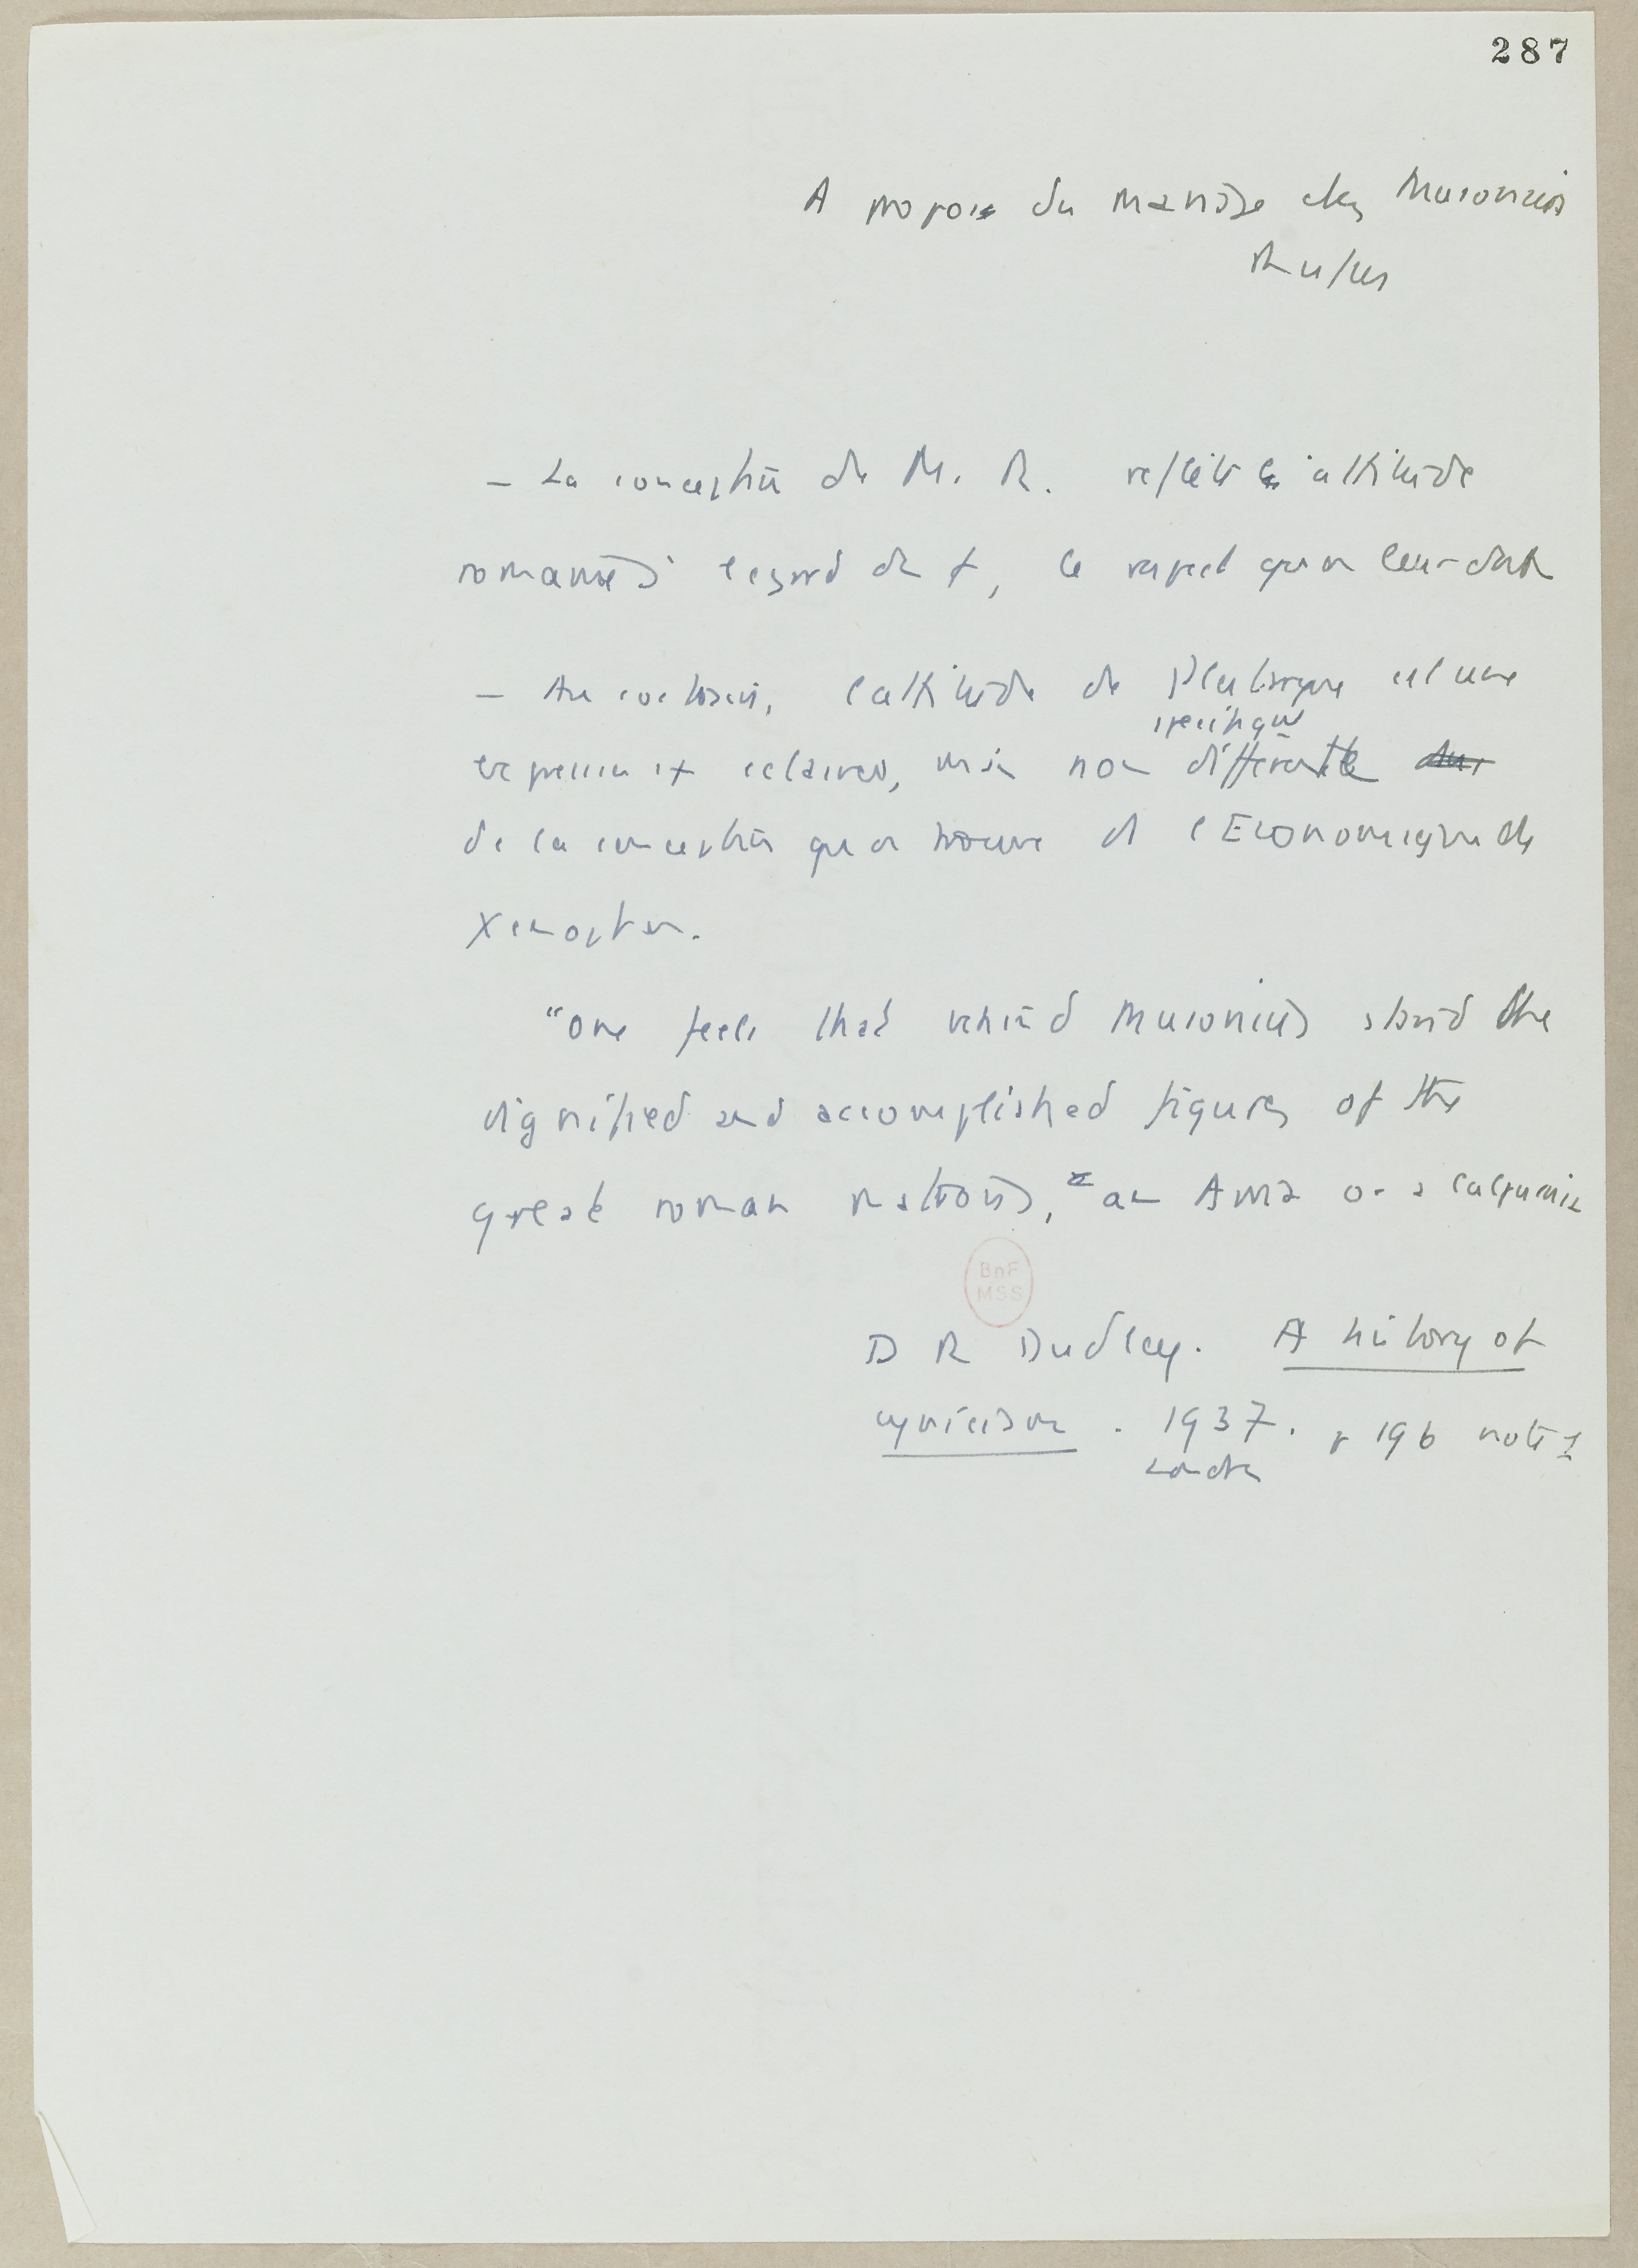 287
A propos du mariage chez Musonius
Rufus
- La conception de M. R. reflète l'attitude
romaine à l'égard des f, le respect qu'on leur doit
- Au contraire, l'attitude de Plutarque est une
spécifiquᵗ
expression éclairée, mais non différente
de la conception qu'on trouve ds l'Economique de
Xenophon.
"One feels that behind Musonius stand the
dignified and accomplished figures of the
great roman matrons, an Arria or a Calpurnia
BnF
MSS
D R Dudley. A history of
cynicism. 1937. p 196 note 1
London